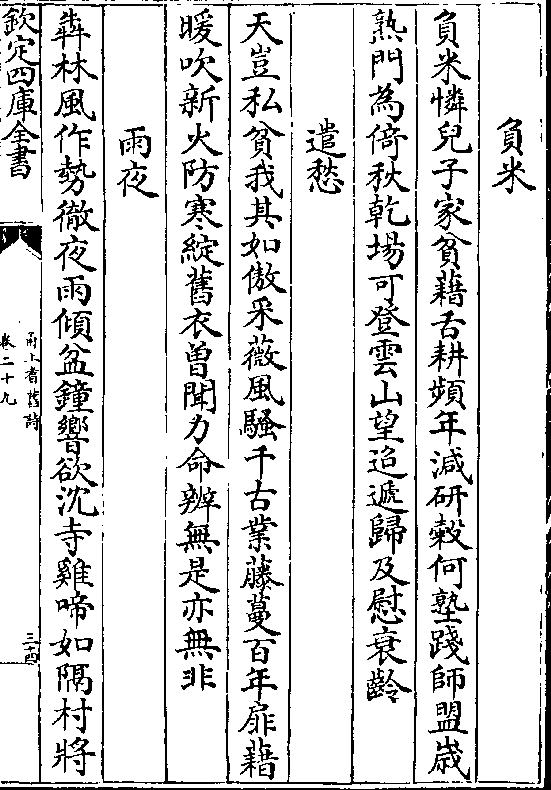 負米
負米憐兒子家貧藉舌耕頻年減研穀何塾踐師盟歳
熟門為倚秋乾場可登雲山望迢遞歸及慰衰齡
遣愁
天豈私貧我其如傲采薇風騷千古業藤蔓百年扉藉
暖吹新火防寒綻舊衣曽聞力命辨無是亦無非
雨夜
犇林風作勢徹夜雨傾盆鐘響欲沈寺雞啼如隔村將
欽定四庫全書
甬上耆舊詩
卷二十九
三十四